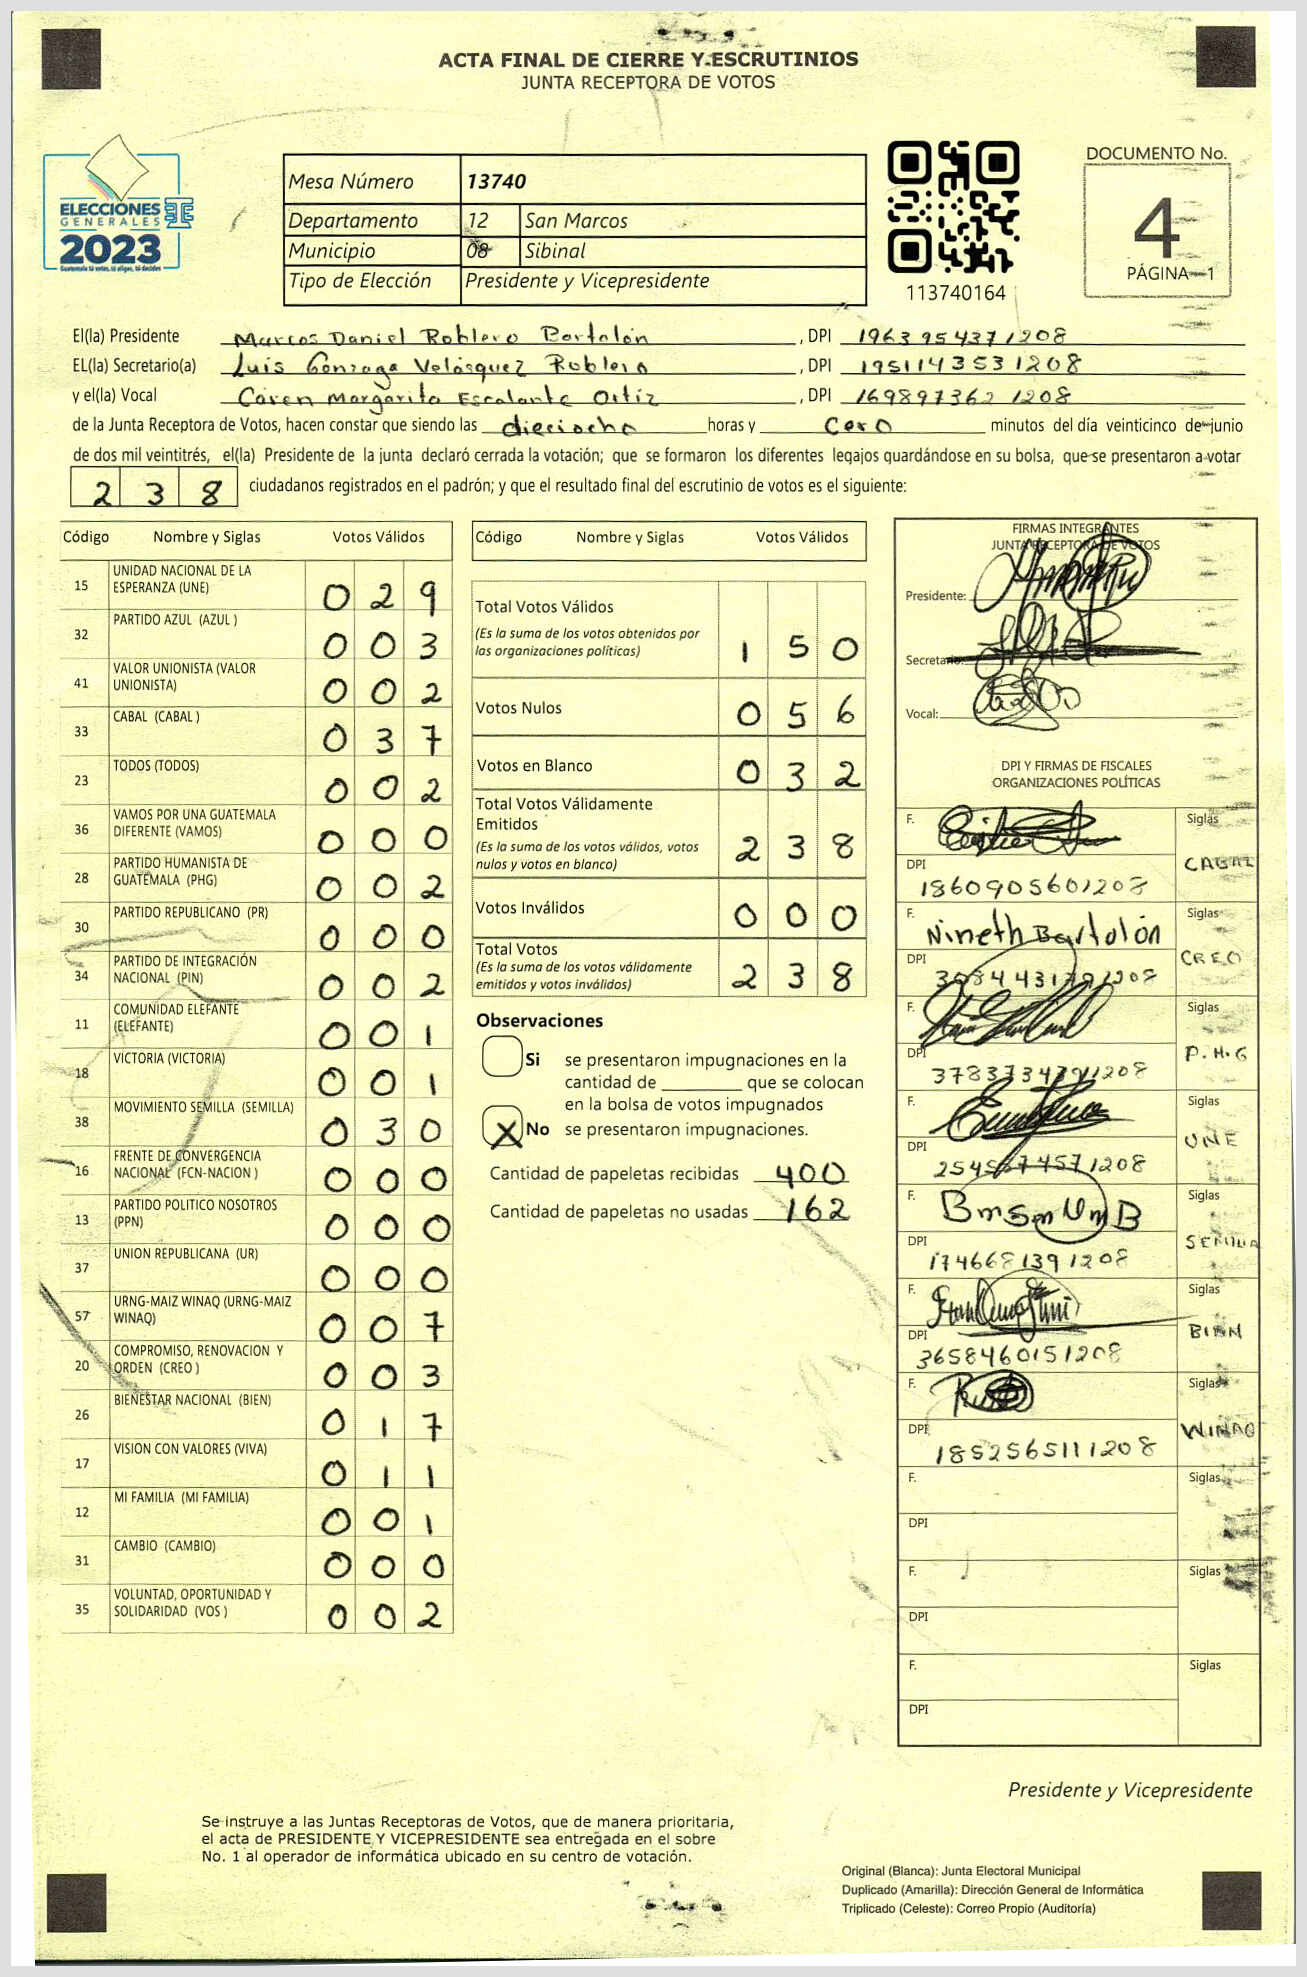 ACTA FINAL DE CIERRE Y ESCRUTINIOS
JUNTA RECEPTORA DE VOTOS
ELECCIONES
GENERALES
2023
Guatemala tú votas, tú eliges, tú decides
Mesa Número 13740
Departamento 12 San Marcos
Municipio 08 Sibinal
Tipo de Elección Presidente y Vicepresidente
113740164
DOCUMENTO No.
4
PÁGINA 1
El(la) Presidente Marcos Daniel Roblero Bartolón , DPI 1963954371208
EL(la) Secretario(a) Luis Gonzaga Velásquez Roblero , DPI 1951143531208
y el(la) Vocal Caren Margarita Escalante Ortíz , DPI 1698973621208
de la Junta Receptora de Votos, hacen constar que siendo las dieciocho horas y Cero minutos del día veinticinco de junio
de dos mil veintitrés, el(la) Presidente de la junta declaró cerrada la votación; que se formaron los diferentes legajos guardándose en su bolsa, que se presentaron a votar
238 ciudadanos registrados en el padrón; y que el resultado final del escrutinio de votos es el siguiente:
Código Nombre y Siglas Votos Válidos
15 UNIDAD NACIONAL DE LA ESPERANZA (UNE) 029
32 PARTIDO AZUL (AZUL ) 003
41 VALOR UNIONISTA (VALOR UNIONISTA) 002
33 CABAL (CABAL ) 037
23 TODOS (TODOS) 002
36 VAMOS POR UNA GUATEMALA DIFERENTE (VAMOS) 000
28 PARTIDO HUMANISTA DE GUATEMALA (PHG) 002
30 PARTIDO REPUBLICANO (PR) 000
34 PARTIDO DE INTEGRACIÓN NACIONAL (PIN) 002
11 COMUNIDAD ELEFANTE (ELEFANTE) 001
18 VICTORIA (VICTORIA) 001
38 MOVIMIENTO SEMILLA (SEMILLA) 030
16 FRENTE DE CONVERGENCIA NACIONAL (FCN-NACION ) 000
13 PARTIDO POLITICO NOSOTROS (PPN) 000
37 UNION REPUBLICANA (UR) 000
57 URNG-MAIZ WINAQ (URNG-MAIZ WINAQ) 007
20 COMPROMISO, RENOVACION Y ORDEN (CREO ) 003
26 BIENESTAR NACIONAL (BIEN) 017
17 VISION CON VALORES (VIVA) 011
12 MI FAMILIA (MI FAMILIA) 001
31 CAMBIO (CAMBIO) 000
35 VOLUNTAD, OPORTUNIDAD Y SOLIDARIDAD (VOS ) 002
Código Nombre y Siglas Votos Válidos
Total Votos Válidos
(Es la suma de los votos obtenidos por
las organizaciones políticas) 150
Votos Nulos 056
Votos en Blanco 032
Total Votos Válidamente
Emitidos
(Es la suma de los votos válidos, votos
nulos y votos en blanco) 238
Votos Inválidos 000
Total Votos
(Es la suma de los votos válidamente
emitidos y votos inválidos) 238
Observaciones
Si se presentaron impugnaciones en la
cantidad de ________ que se colocan
en la bolsa de votos impugnados
X No se presentaron impugnaciones.
Cantidad de papeletas recibidas 400
Cantidad de papeletas no usadas 162
FIRMAS INTEGRANTES
JUNTA RECEPTORA DE VOTOS
Presidente:
Secretario:
Vocal:
DPI Y FIRMAS DE FISCALES
ORGANIZACIONES POLÍTICAS
F. Siglas
CABAL
DPI
1860905601208
F. Nineth Bartolón Siglas
CREO
DPI
F. Siglas
P.H.G
DPI
F. Siglas
UNE
DPI
F. Siglas
SEMILLA
DPI
1746681391208
F. Siglas
BIEN
DPI
3658460151208
F. Siglas
WINAQ
DPI
1852565111208
F. Siglas
DPI
F. Siglas
DPI
F. Siglas
DPI
Presidente y Vicepresidente
Se instruye a las Juntas Receptoras de Votos, que de manera prioritaria,
el acta de PRESIDENTE Y VICEPRESIDENTE sea entregada en el sobre
No. 1 al operador de informática ubicado en su centro de votación.
Original (Blanca): Junta Electoral Municipal
Duplicado (Amarilla): Dirección General de Informática
Triplicado (Celeste): Correo Propio (Auditoría)